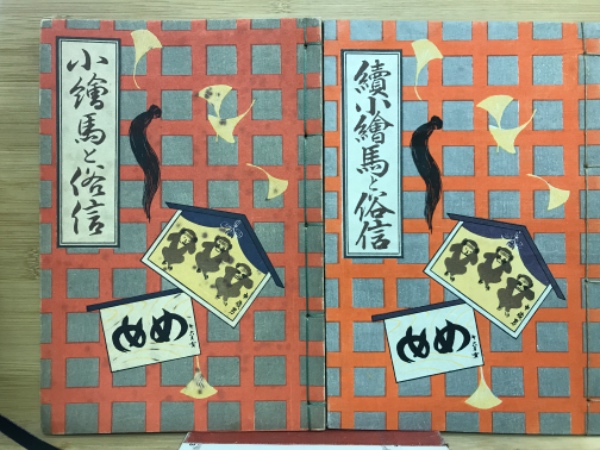 小繪馬と俗信
めめ
續小繪馬と俗信
めめ